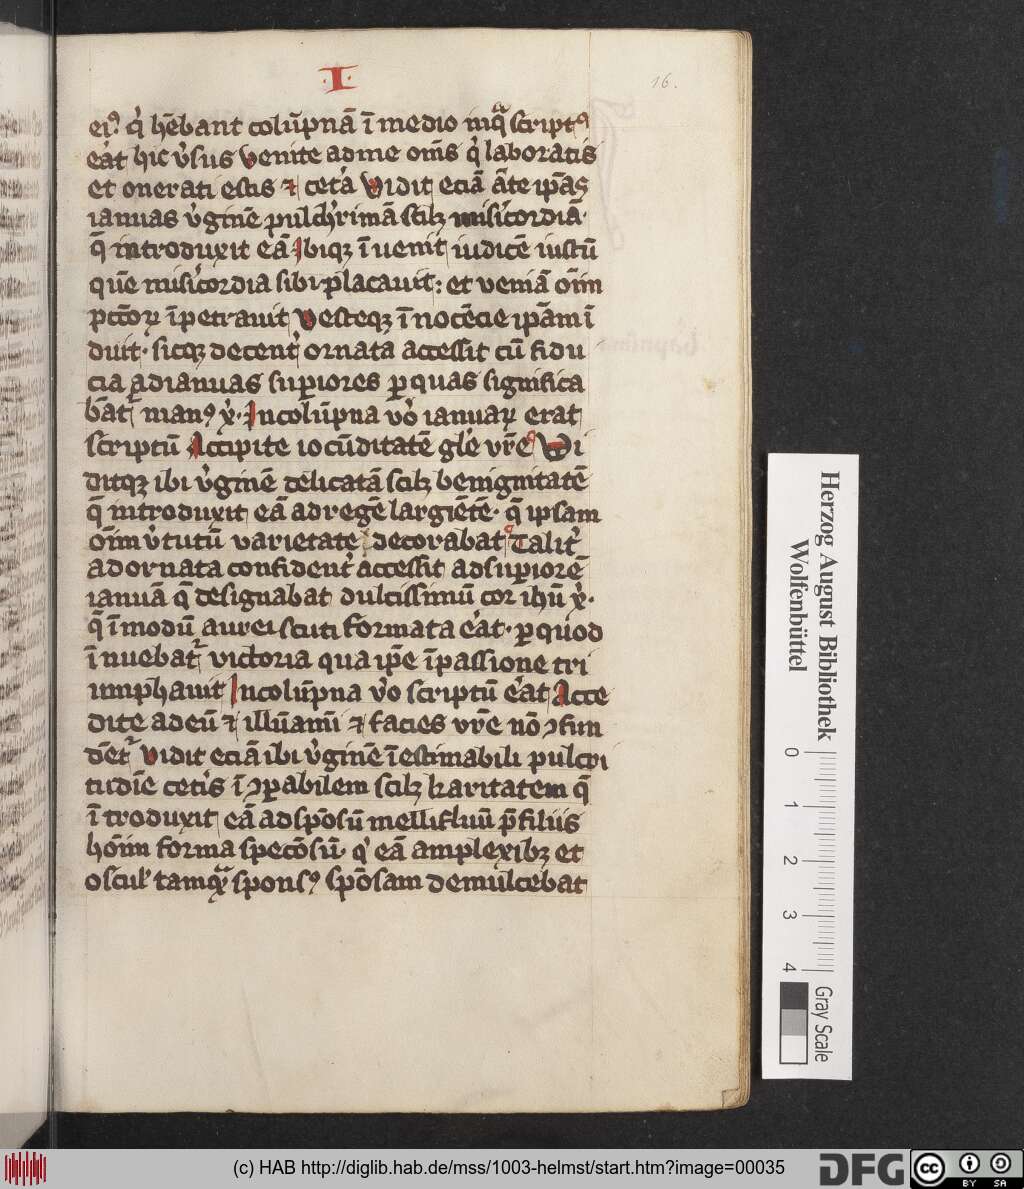 ·I·
16.
ei⁹ q̇ hēbant colūpnā ī medio inqᷓ script⁹
eᷓt hic v̓sus Venite ad me om̄s q̇ laboratis
et onerati estis ⁊ cetᷓa Vidit eciā āte ip̄as
ianuas v̓ginē pulch̓rimā scilꝫ mis̓icordiā·
q̄ introduxit eā Ibiqꝫ īuenit iudicē iustū
quē mis̓icordia sibi placauit: et veniā oīm
pctōꝝ īpetrauit Vesteqꝫ īnocēcie ip̄am ī
duit· sicqꝫ decent̓ ornata accessit cū fidu
cia ad ianuas suꝑiores ꝑ quas significa
bāt᷑ man⁹ xͥ· In colūpna v̊o ianuaꝝ erat
scriptū Accipite iocūditatē gl̓e vr̄e Vi
ditqꝫ ibi v̓ginē delicatā scilꝫ benignitatē
q̄ introduxit eā ad regē largiētē· q̄ ipsam
oīm v̓tutū varietate decorabat Talit̓
adornata confident̓ accessit ad suꝑiorē
ianuā q̄ designabat dulcissimū cor ihū xͥ·
q̄ ī modū aurei scuti formata eᷓt· ꝑ quod
īnuebat᷑ victoria qua ip̄e ī passione tri
umphauit In colūpna v̊o scriptū eᷓt Acce
dite ad eū ⁊ illūamī ⁊ facies vr̄e nō ꝯfun
dēt᷑ Vidit eciā ibi v̓ginē īestimabili pulcri
tudīe cetis̓ īꝯꝑabilem scilꝫ karitatem q̄
ītroduxit eā ad spōsū mellifluū p̄ filiis
hōīm forma specōsū· qͥ eā amplexibꝫ et
oscul̓ tamqᷓ spons⁹ spōsam demulcebat
Herzog August Bibliothek
Wolfenbüttel
0 1 2 3 4
Gray Scale
(c) HAB http://diglib.hab.de/mss/1003-helmst/start.htm?image=00035
DFG
cc BY SA